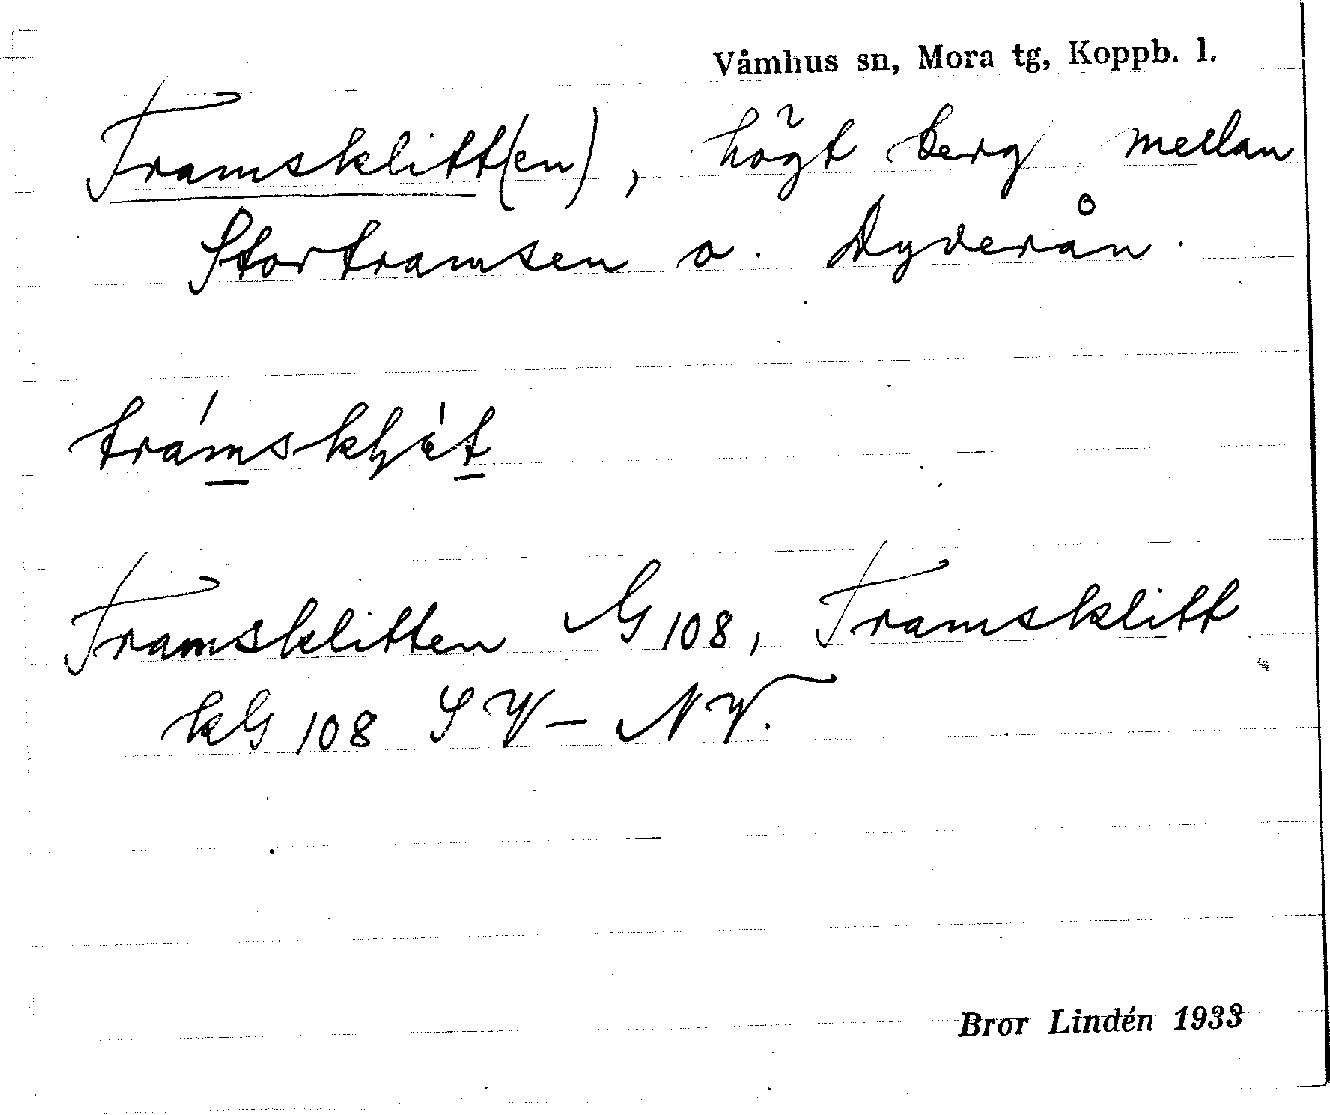 Våmhus sn, Mora tg, Koppb. l.
Tramsklitt(en), högt berg mellan
Stortramsen o. Dyverån.
Tramsklitten G 108, Tramsklitt
kG 108 SV – NV.
Bror Lindén 1933